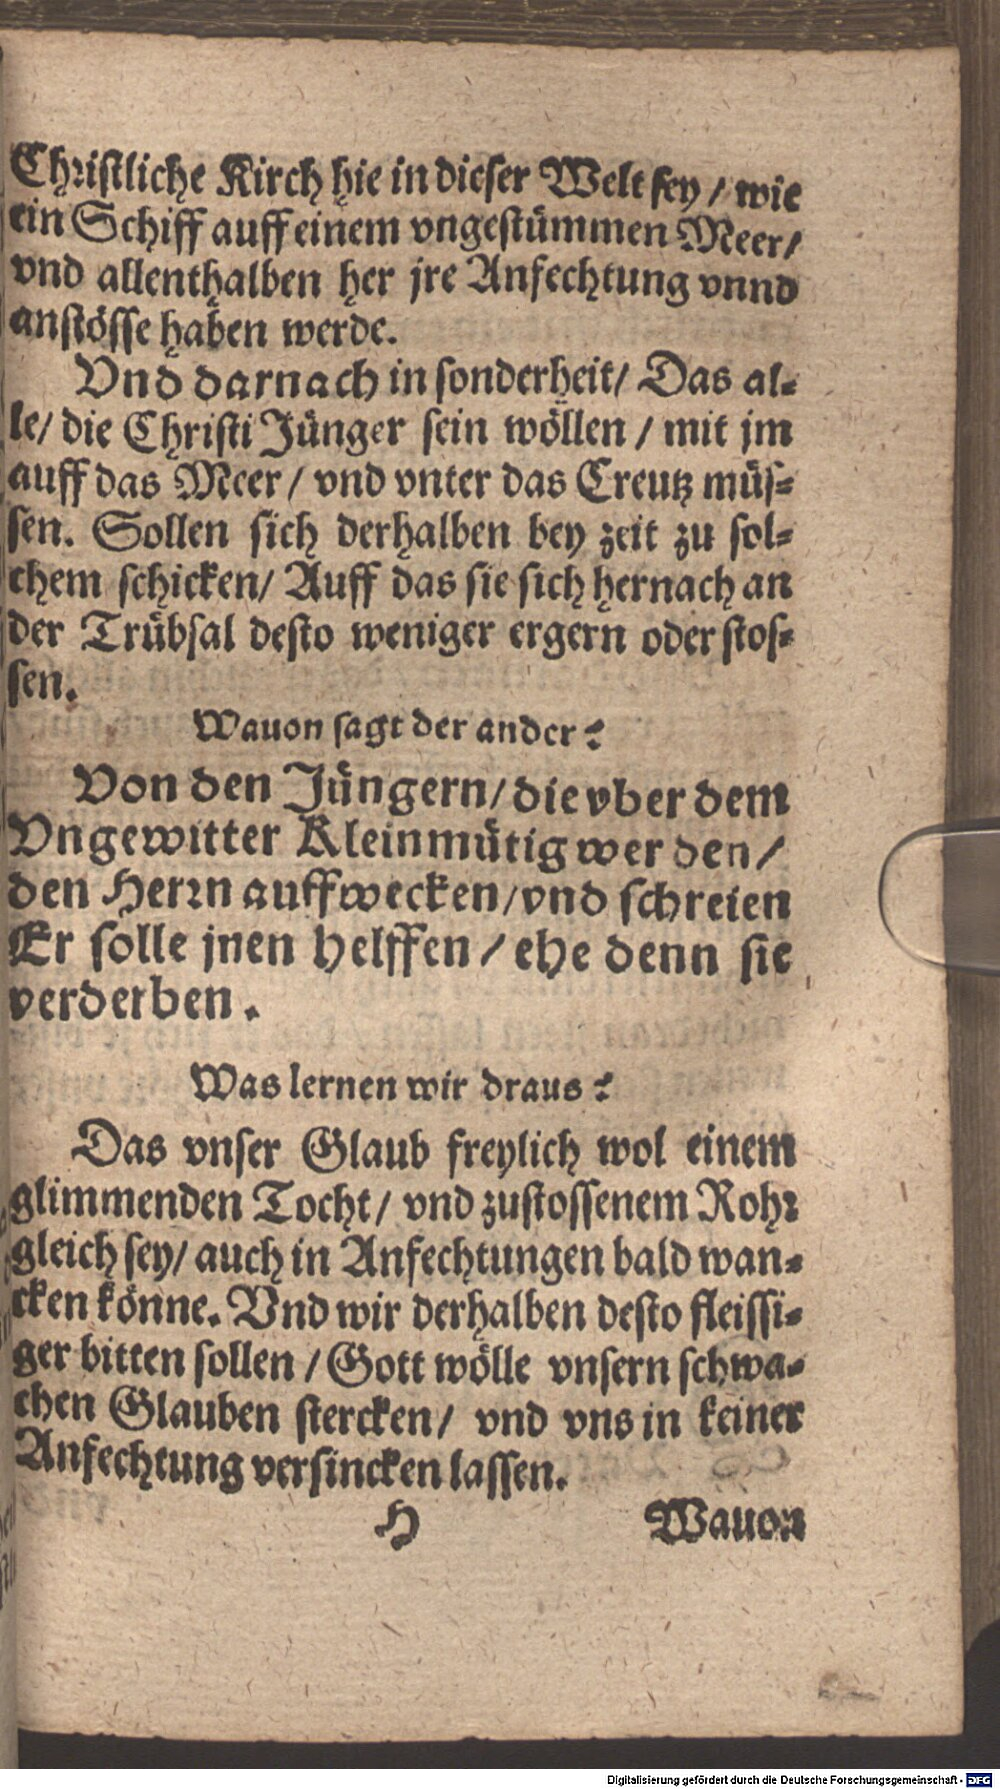 Christliche Kirch hie in dieser Welt sey / wie
ein Schiff auff einem vngestümmen Meer /
vnd allenthalben her jre Anfechtung vnnd
anstösse haben werde.
Vnd darnach in sonderheit / Das al-
le / die Christi Jünger sein wöllen / mit jm
auff das Meer / vnd vnter das Creutz müs-
sen. Sollen sich derhalben bey zeit zu sol-
chem schicken / Auff das sie sich hernach an
der Trübsal desto weniger ergern oder stos-
sen.
Wauon sagt der ander?
Von den Jüngern / die vber dem
Vngewitter Kleinmütig werden /
den Herrn auffwecken / vnd schreien
Er solle jnen helffen / ehe denn sie
verderben.
Was lernen wir draus?
Das vnser Glaub freylich wol einem
glimmenden Tocht / vnd zustossenem Rohr
gleich sey / auch in Anfechtungen bald wan-
cken könne. Vnd wir derhalben desto fleissi-
ger bitten sollen / Gott wölle vnsern schwa-
chen Glauben stercken / vnd vns in keiner
Anfechtung versincken lassen.
H Wauon
Digitalisierung gefördert durch die Deutsche Forschungsgemeinschaft - DFG